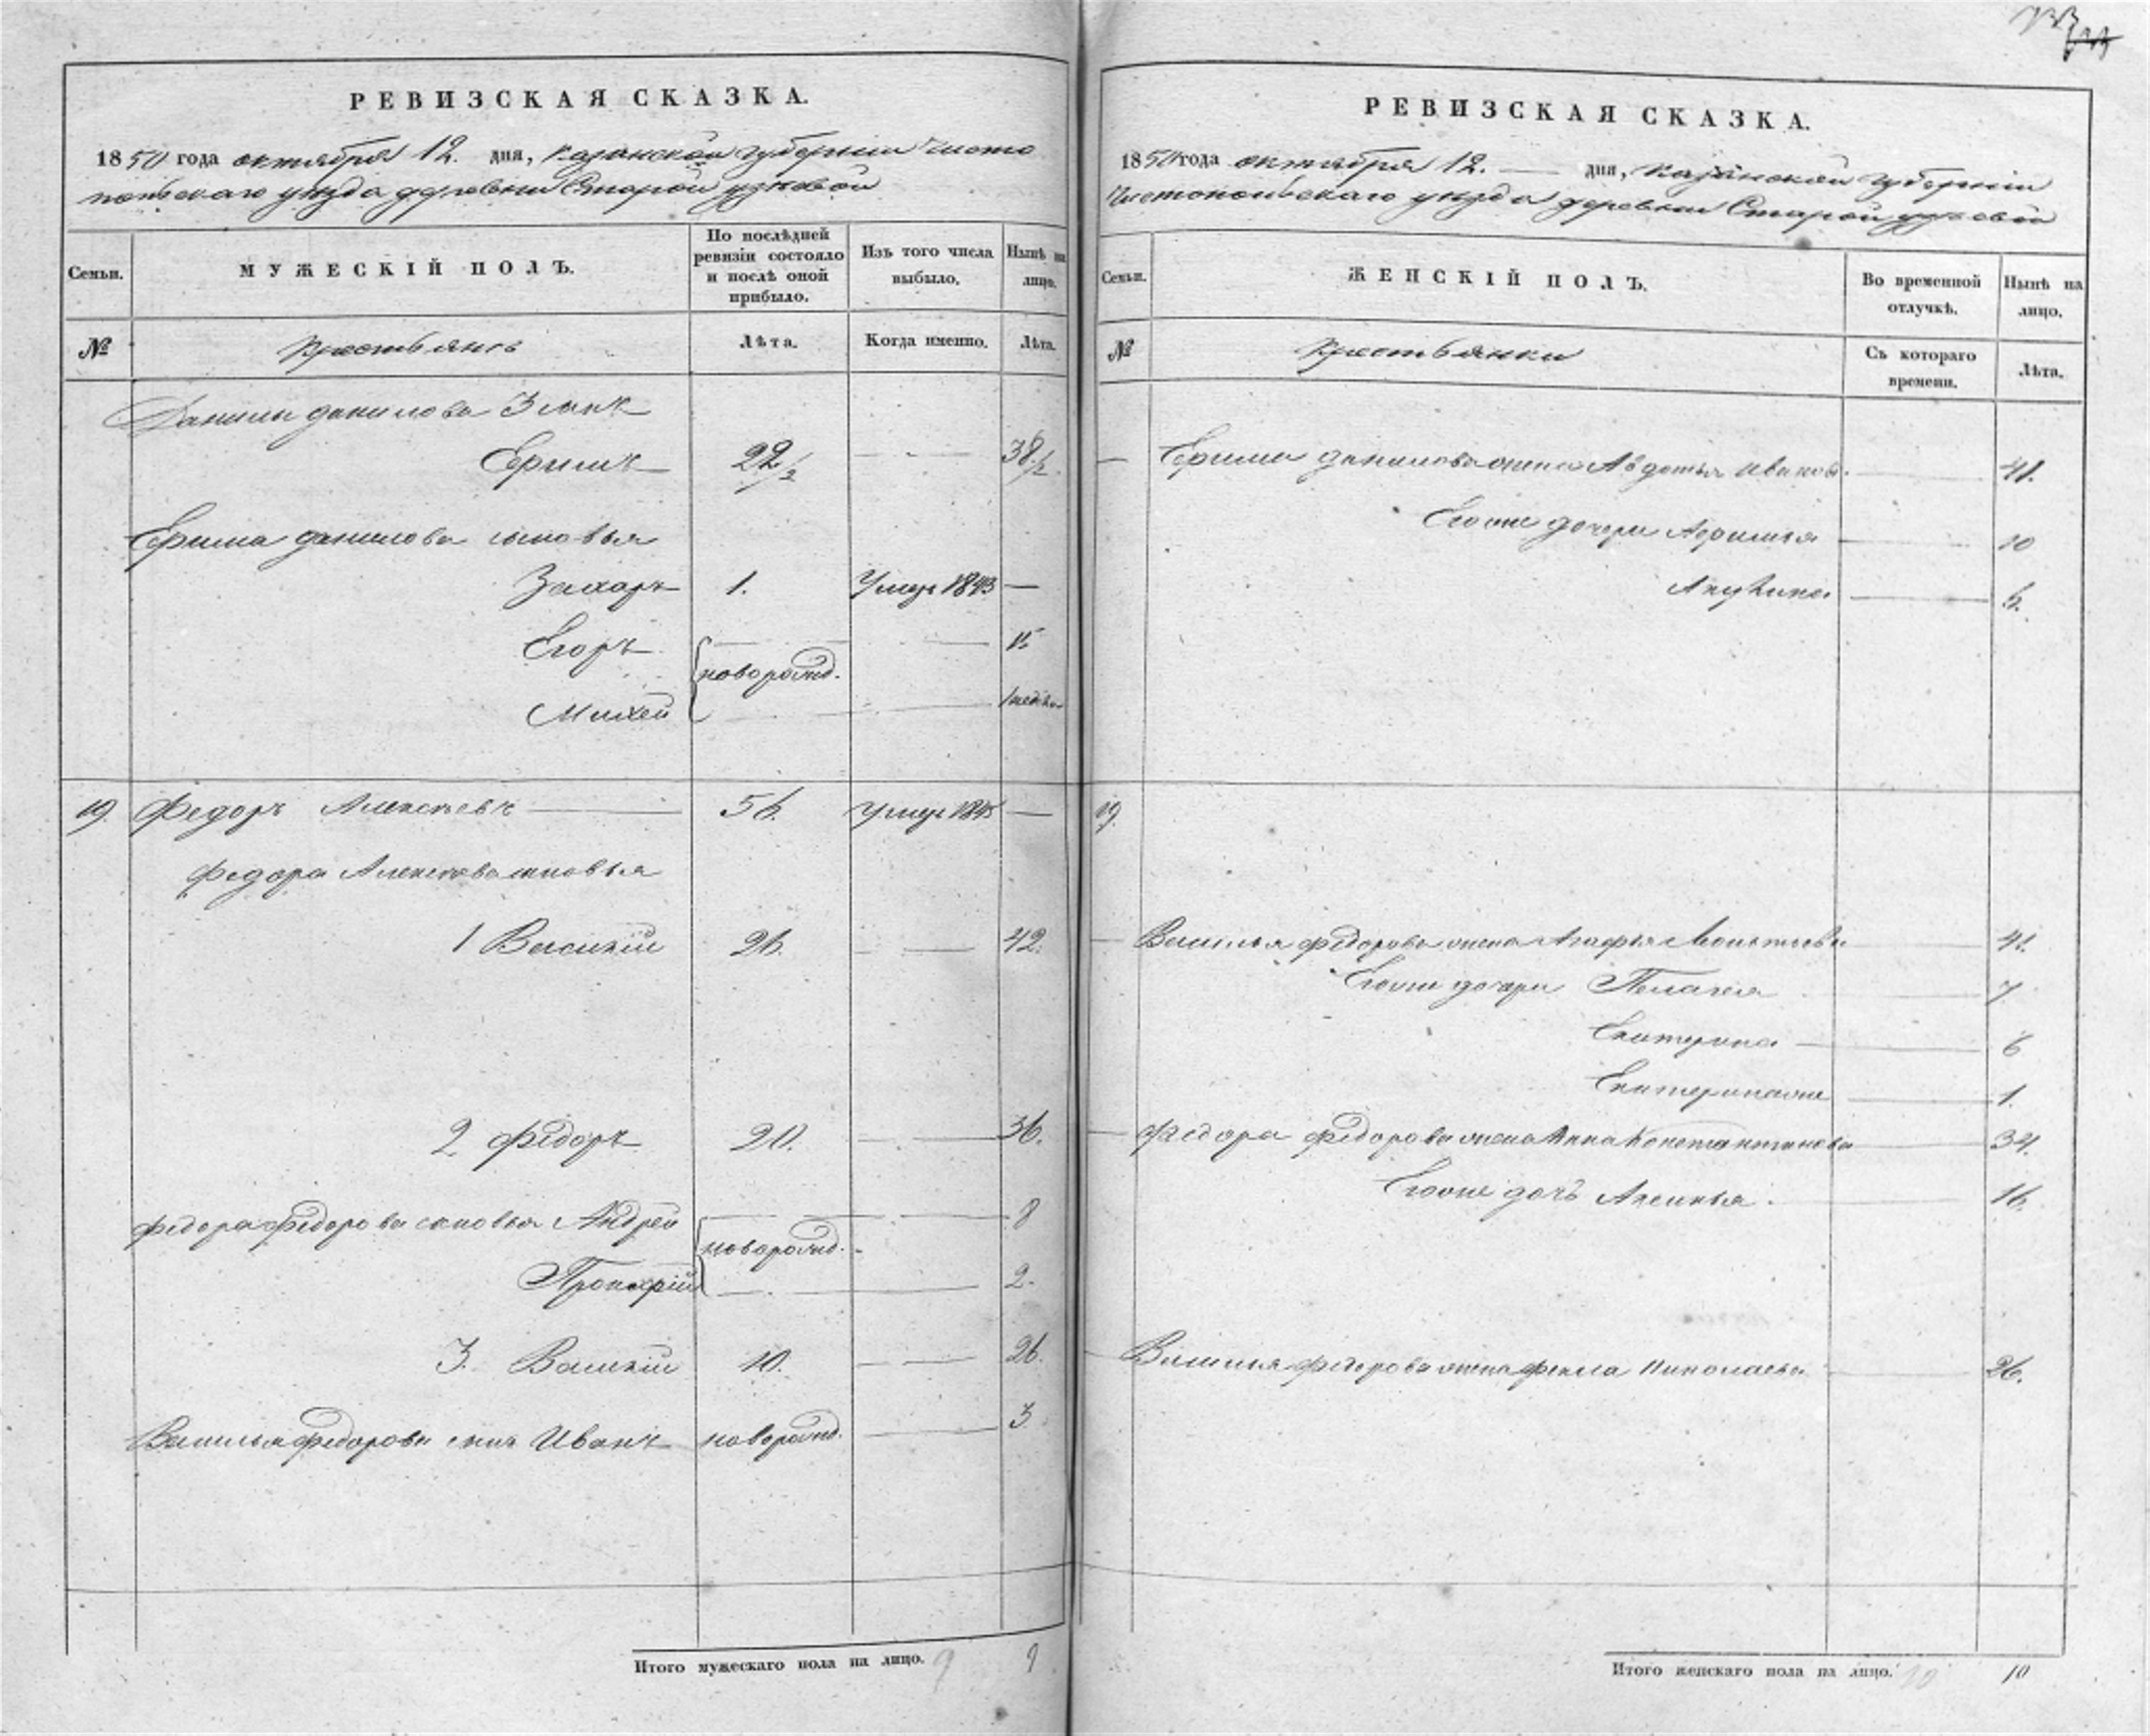 РЕВИЗСКАЯ СКАЗКА.
1850 года октября 12. дня, Казанской губернии Чисто
польскаго уезда деревни Старой Узеевой
Семьи.
МУЖЕСКІЙ ПОЛЪ.
По послѣдней ревизіи состояло и послѣ оной прибыло.
Изъ того числа выбыло.
Нынѣ на лицо.
№
Крестьянъ
Лѣта.
Когда именно.
Лѣта.
Данилы Данилова 3 сынъ
Ефимъ 22 1/2 38 1/2
Ефима Данилова сыновья
Захаръ 1. Умеръ 1843 —
Егоръ 15
новорожд.
Михей 1 недѣли
19. Федоръ Алексѣевъ 56. Умеръ 1845 —
Федора Алексѣева сыновья
1 Василій 26. 42.
2 Федоръ 20. 36.
Федора Федорова сыновья Андрей 8
новорожд.
Прокофій 2.
3. Василій 10. 26.
Василья Федорова сынъ Иванъ новорожд. 3
Итого мужескаго пола на лицо. 9 9
РЕВИЗСКАЯ СКАЗКА.
1850 года октября 12. дня, Казанской губерніи
Чистопольскаго уезда деревни Старой Узеевой
Семьи.
ЖЕНСКІЙ ПОЛЪ.
Во временной отлучкѣ.
Нынѣ на лицо.
№
Крестьянки
Съ котораго времени.
Лѣта.
Ефима Данилова жена Авдотья Иванова 41.
Егоже дочери Афимья 10
Акулина 6.
19.
Василья Федорова жена Агафья Леонтьева 41.
Егоже дочери Пелагея 7
Екатерина 6
Екатерина же 1.
Федора Федорова жена Анна Константинова 34.
Егоже дочь Аксинья. 16.
Василья Федорова жена Фекла Николаева 26.
Итого женскаго пола на лицо. 10 10